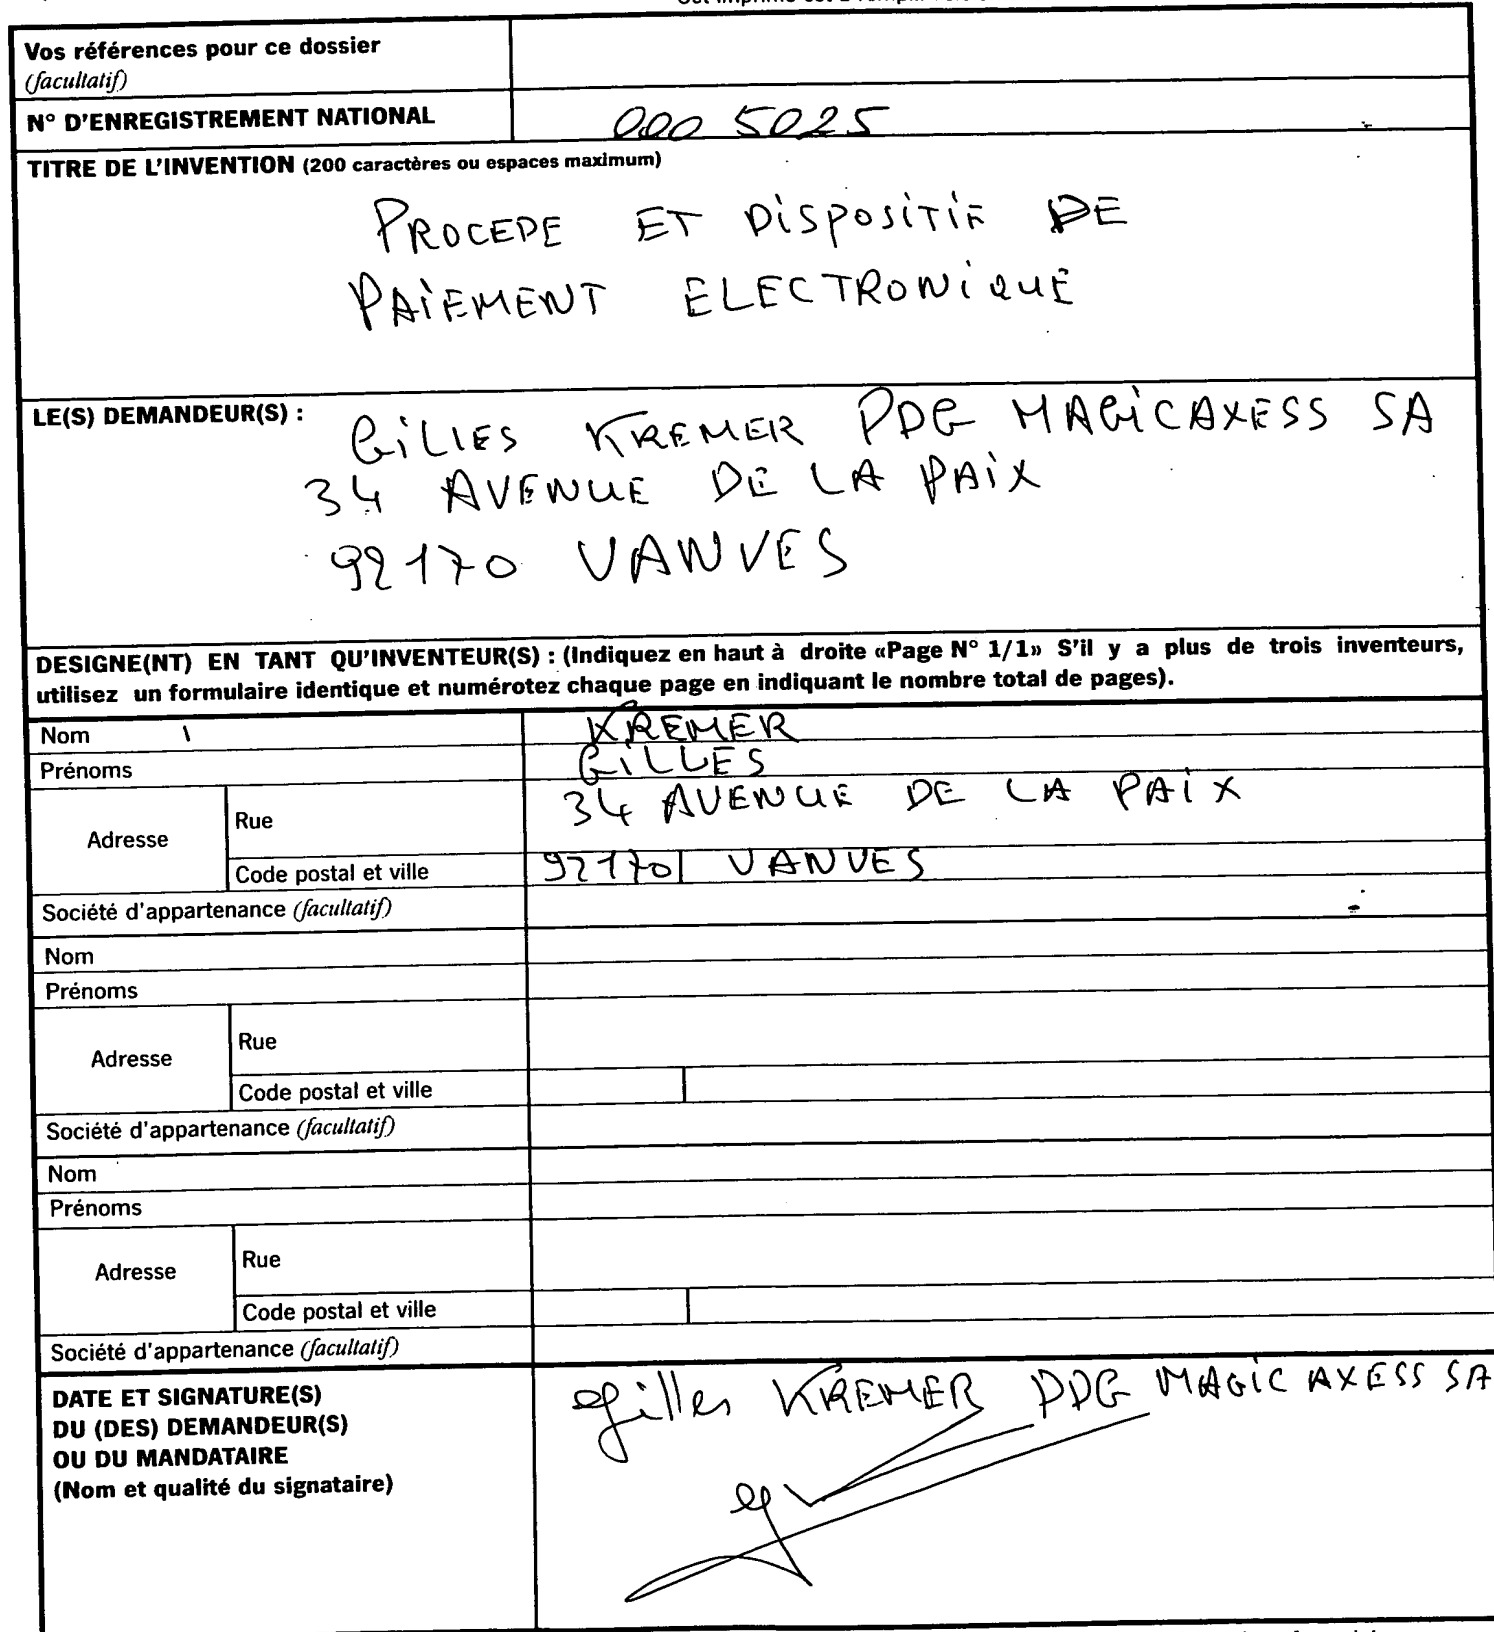 Vos références pour ce dossier
(facultatif)
N° D'ENREGISTREMENT NATIONAL 000 5025
TITRE DE L'INVENTION (200 caractères ou espaces maximum)
PROCEDE ET DISPOSITIF DE
PAIEMENT ELECTRONIQUE
LE(S) DEMANDEUR(S) :
GILLES KREMER PDG MAGICAXESS SA
34 AVENUE DE LA PAIX
92170 VANVES
DESIGNE(NT) EN TANT QU'INVENTEUR(S) : (Indiquez en haut à droite «Page N° 1/1» S'il y a plus de trois inventeurs,
utilisez un formulaire identique et numérotez chaque page en indiquant le nombre total de pages).
Nom KREMER
Prénoms GILLES
Adresse
Rue 34 AVENUE DE LA PAIX
Code postal et ville 92170 VANVES
Société d'appartenance (facultatif)
Nom
Prénoms
Adresse
Rue
Code postal et ville
Société d'appartenance (facultatif)
Nom
Prénoms
Adresse
Rue
Code postal et ville
Société d'appartenance (facultatif)
DATE ET SIGNATURE(S)
DU (DES) DEMANDEUR(S)
OU DU MANDATAIRE
(Nom et qualité du signataire)
Gilles KREMER PDG MAGIC AXESS SA